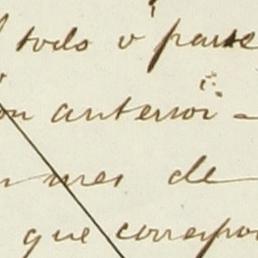 todo o parte
anterior -
mes de
que correspon